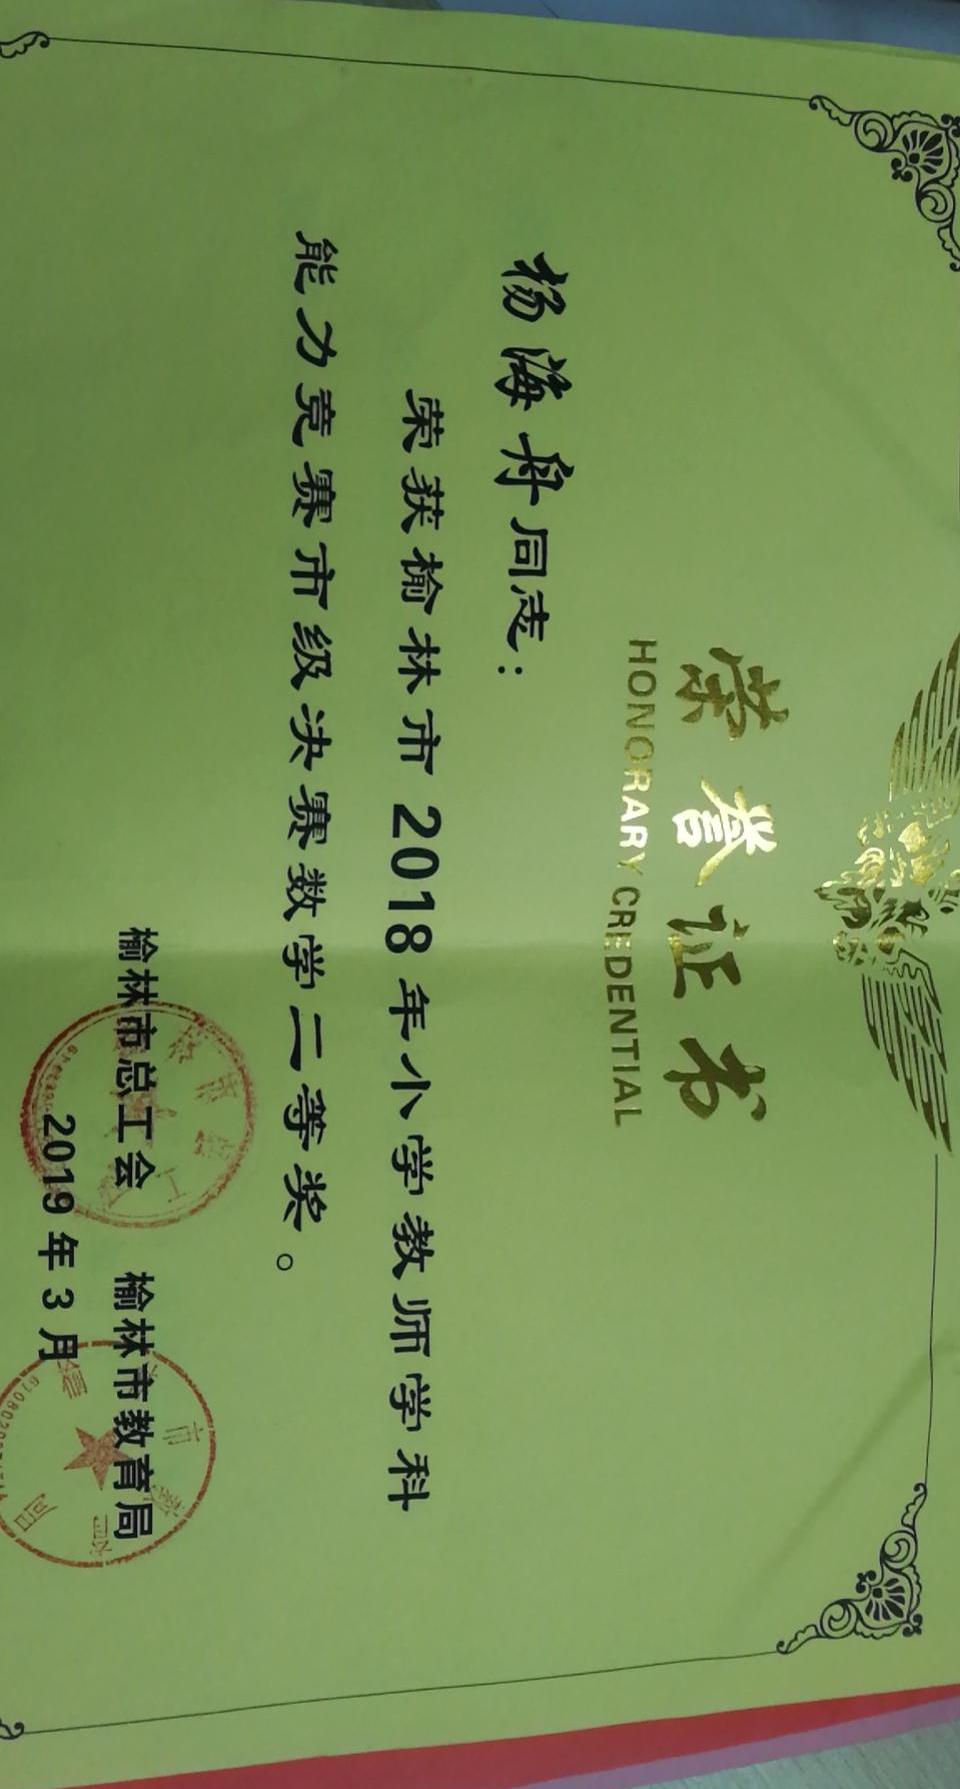 荣誉证书
HONORARY CREDENTIAL
杨海舟同志：
荣获榆林市2018年小学教师学科
能力竞赛市级决赛数学二等奖。
榆林市总工会 榆林市教育局
2019年3月